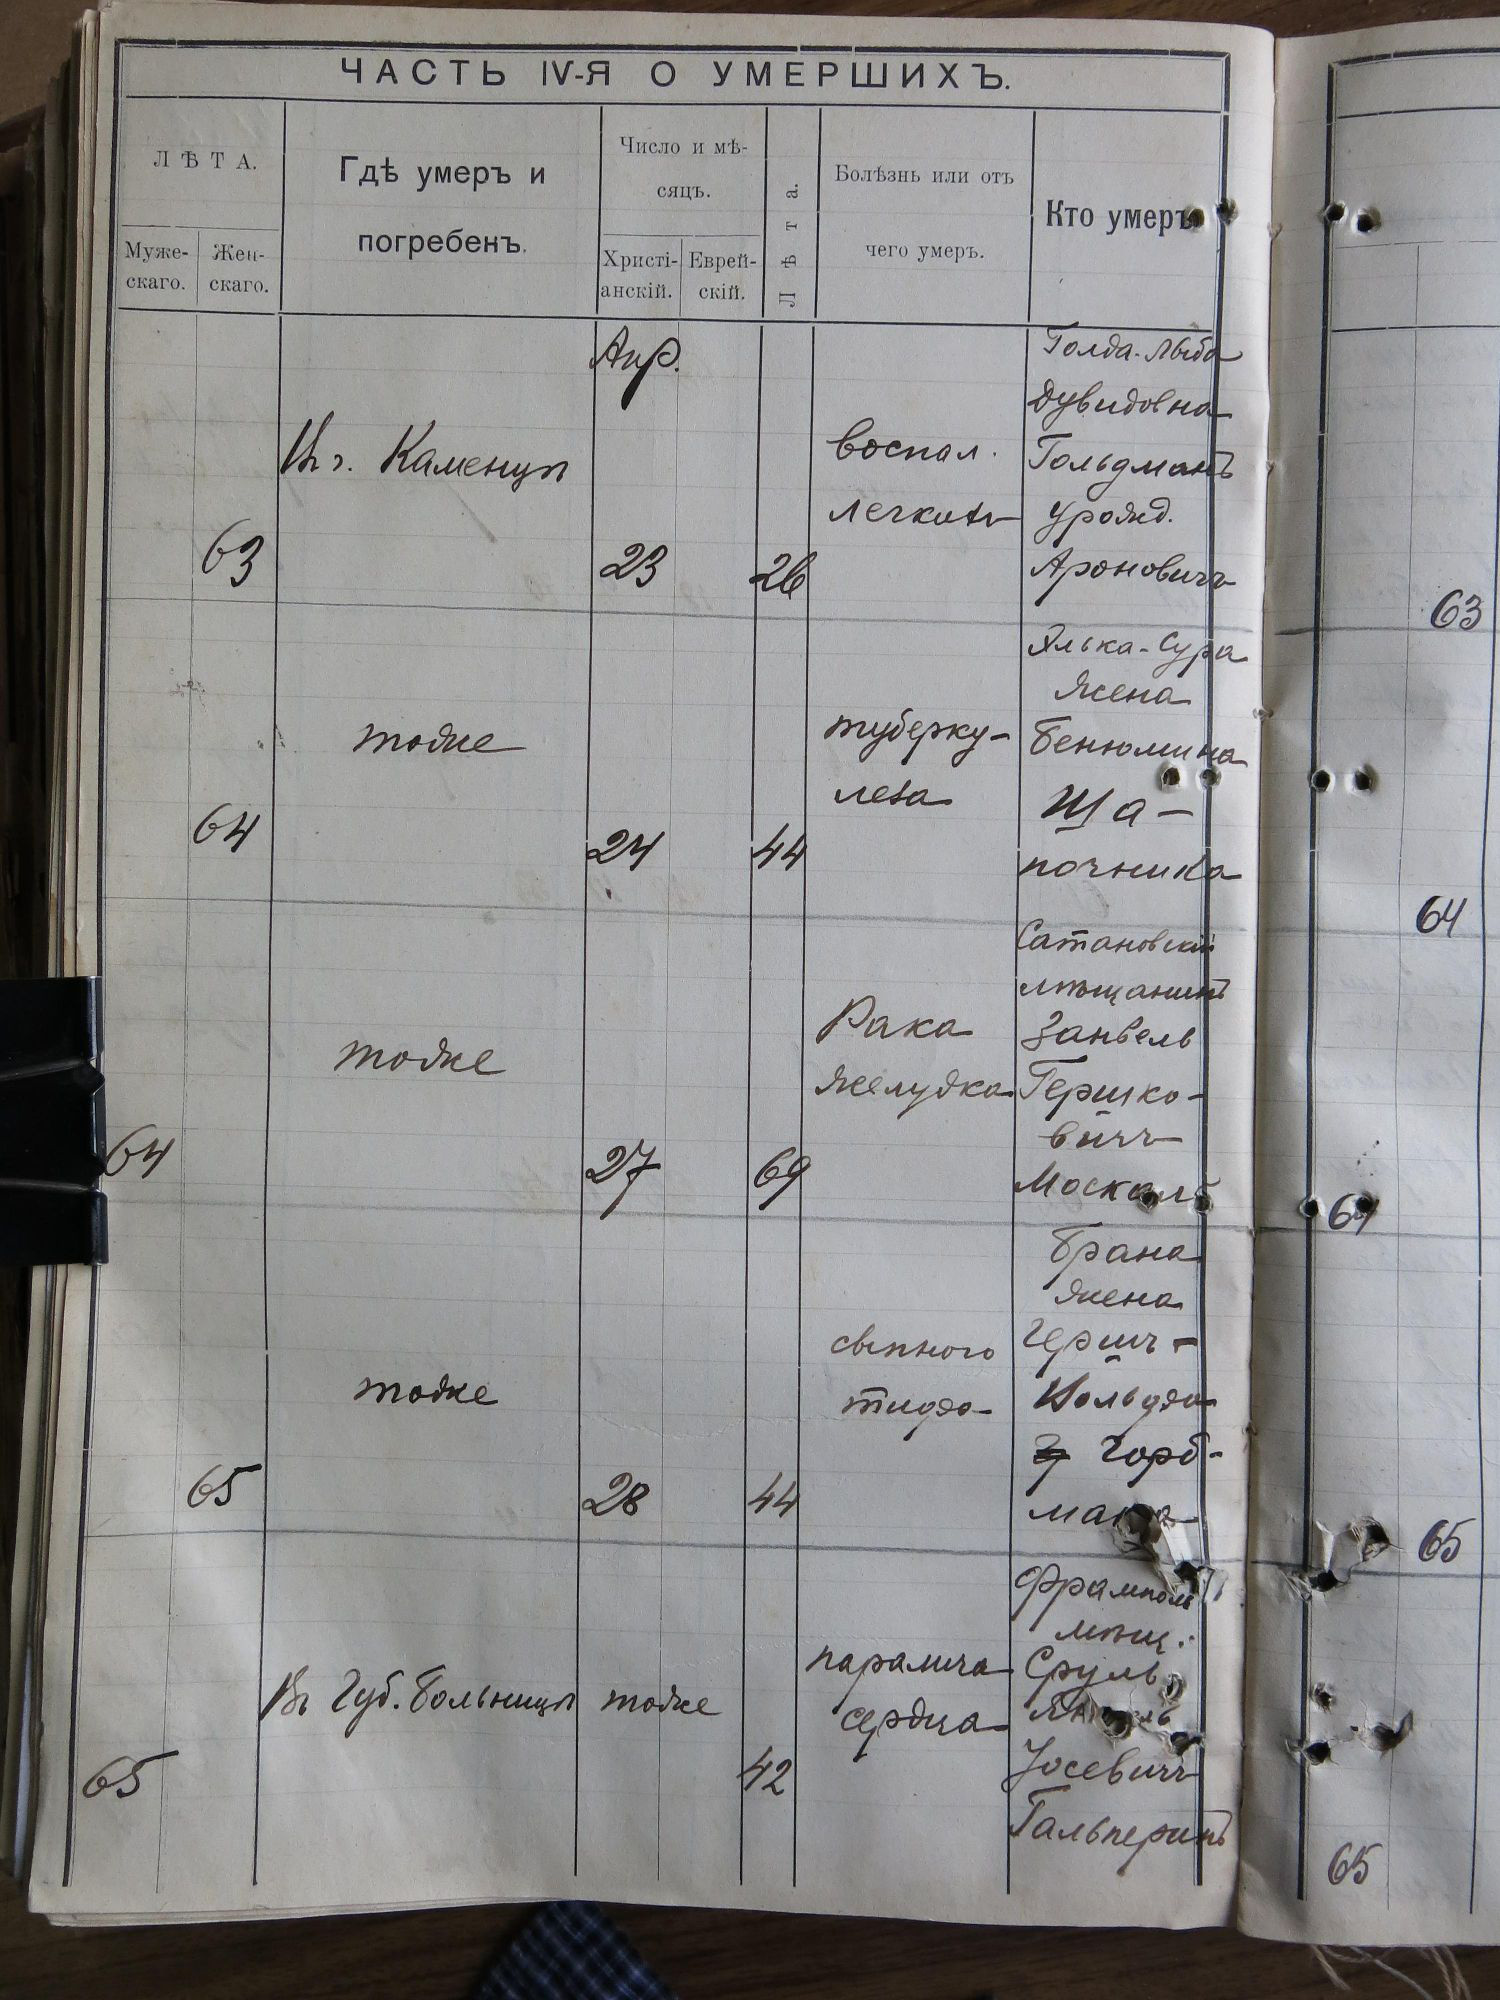 ЧАСТЬ IV-Я О УМЕРШИХЪ.
ЛѢТА.
Муже-
скаго.
Жен-
скаго.
Гдѣ умеръ и
погребенъ.
Число и мѣ-
сяцъ.
Христі-
анскій.
Еврей-
скій.
Лѣта.
Болѣзнь или отъ
чего умеръ.
Кто умеръ
63
г. Каменцѣ
Апр.
23
26
воспал.
легкихъ
Голда-Лыба
Дувидовна
Гольдманъ
урожд.
Ароновичъ
63
64
тоже
24
44
туберку-
леза
Элька-Сура
жена
Бенюмина
Ша-
почника
64
64
тоже
27
69
Рака
желудка
Сатановскій
мѣщанинъ
Занвель
Гершко-
вичъ
Москаль
64
65
тоже
28
44
сыпного
тифа
Брана
жена
Герш-
Вольфа
Горб-
мана
65
65
Въ Губ. Больницѣ
тоже
42
паралича
сердца
Фрампол
мѣщ.
Сруль
Іосевичъ
Гальперинъ
65